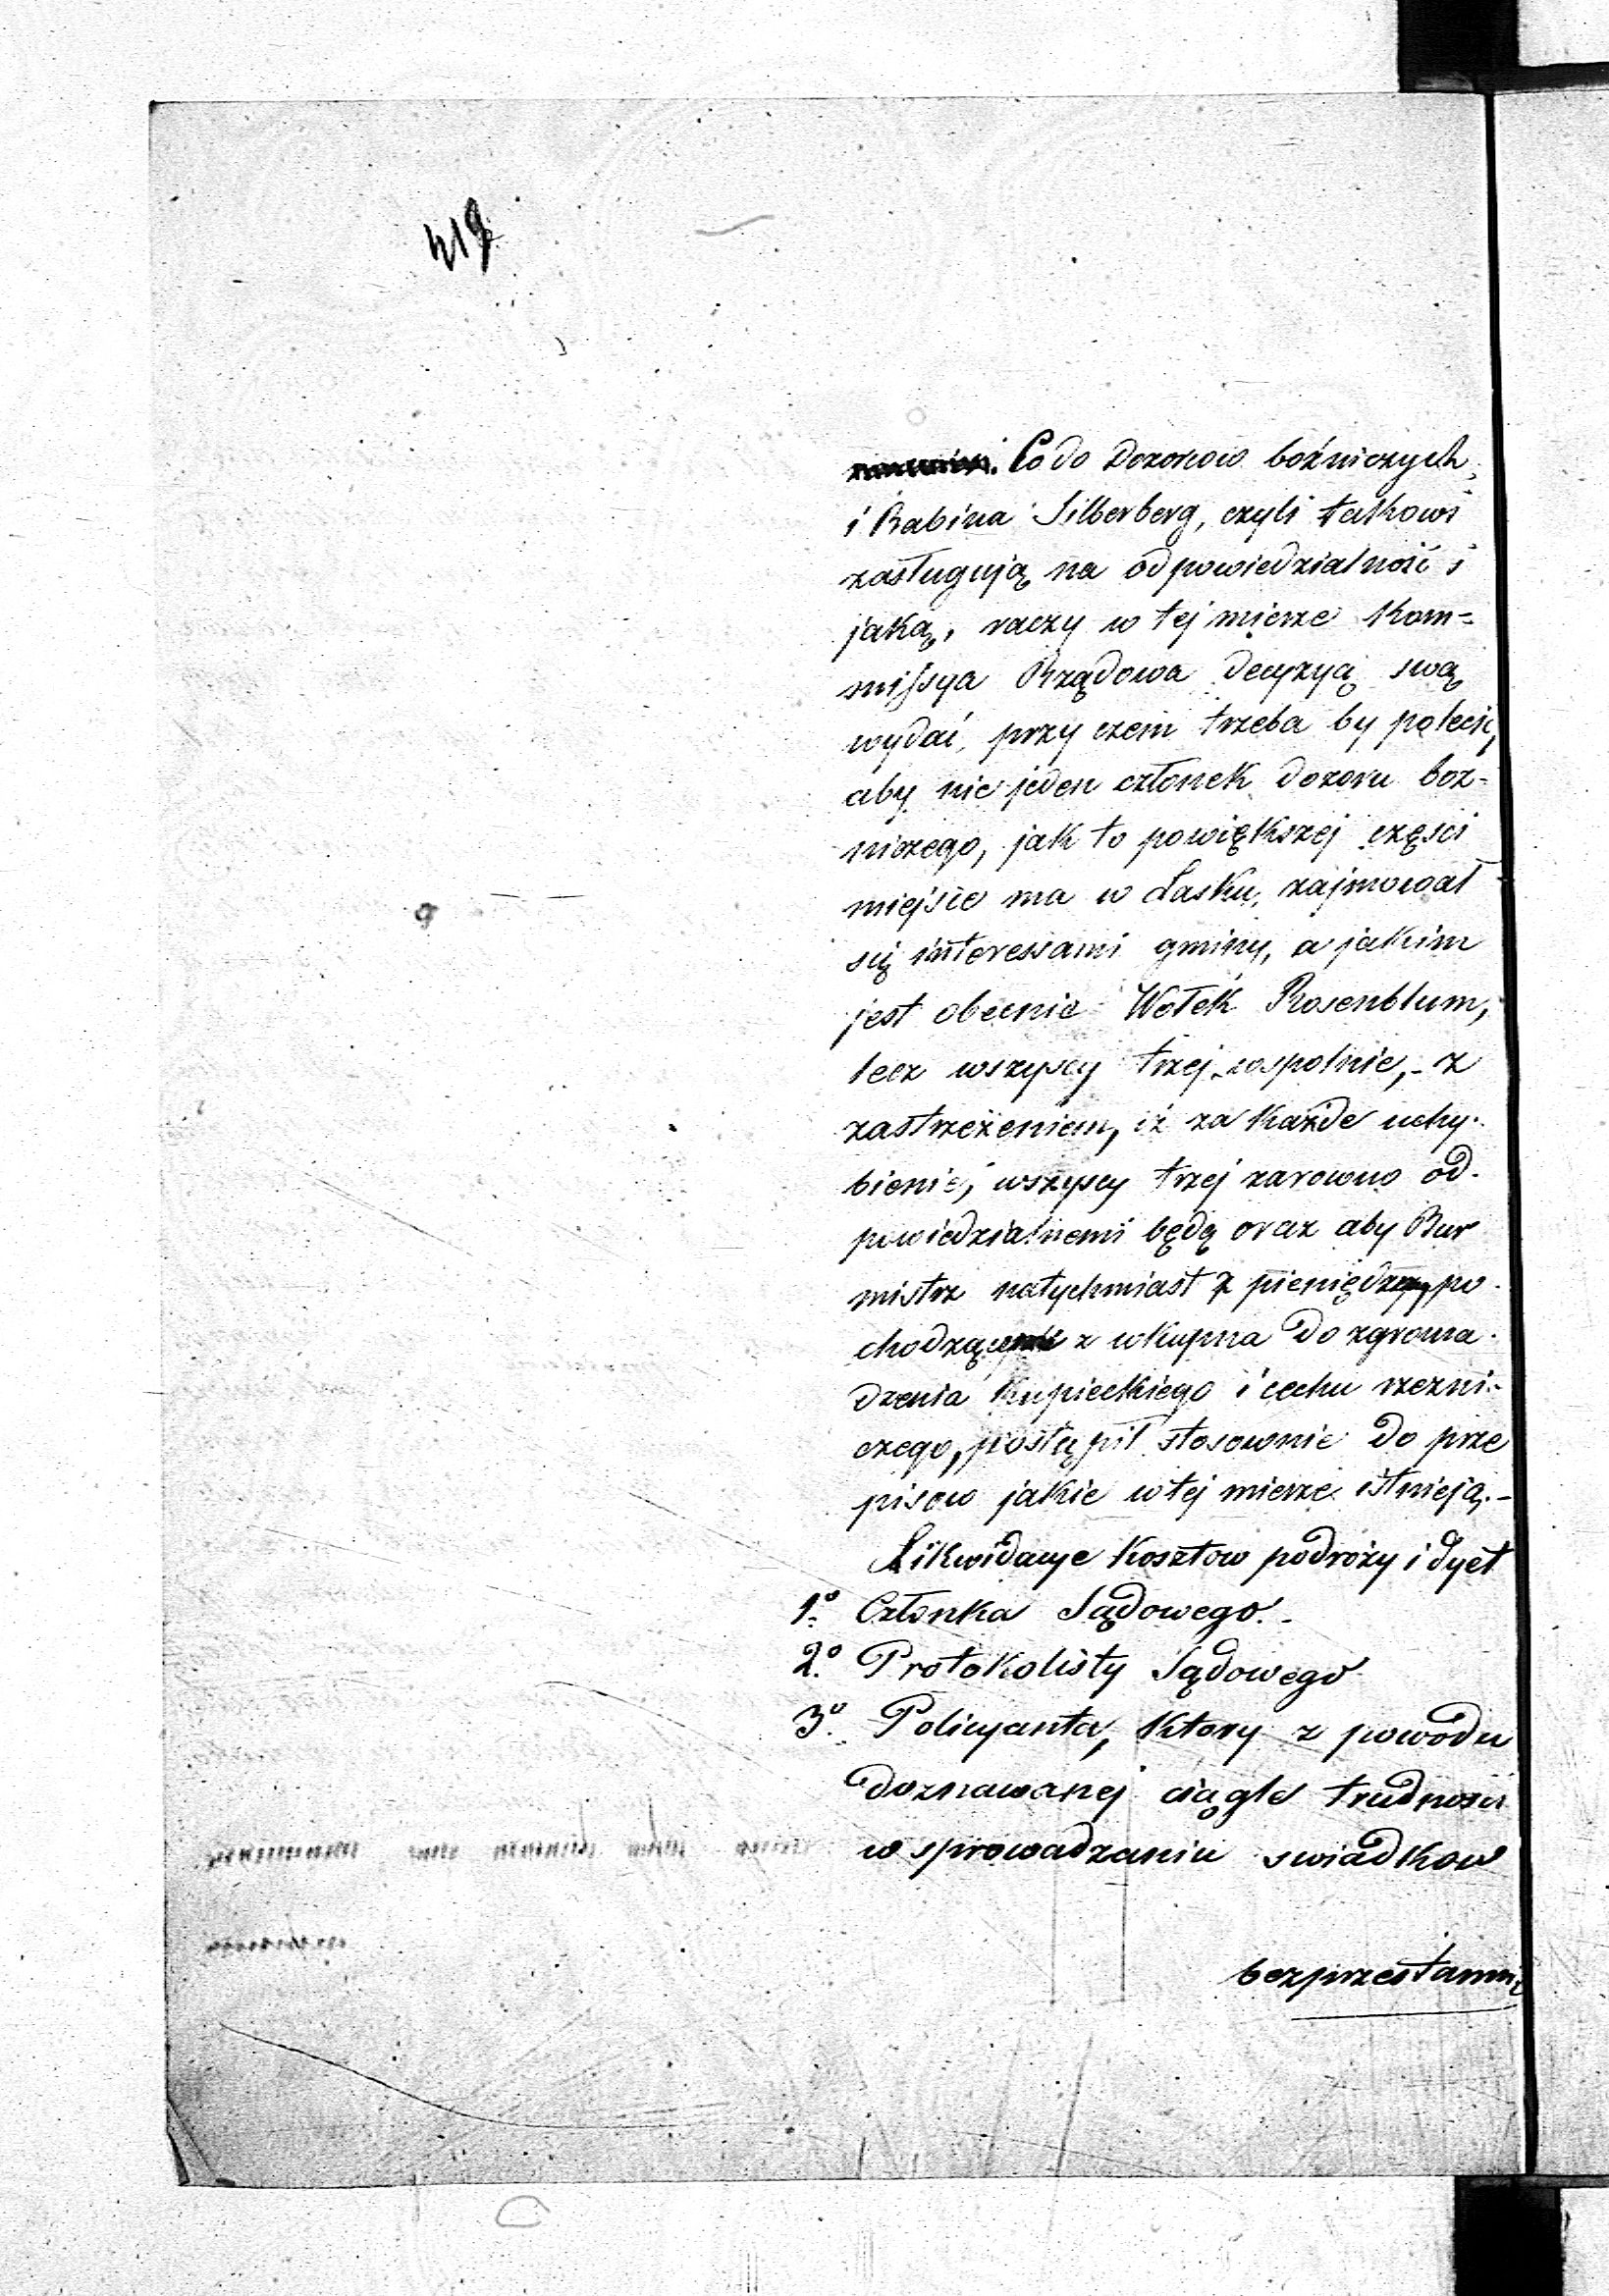 Co do Dozorow bożniczych,
i Rabina Silberberg, czyli takowi
zasługują na odpowiedzialność i
jaką, raczy w tej mierze Kom-
missya Rządowa decyzyą swą
wydać, przy czem trzeba by polecić,
aby nie jeden członek dozoru boż-
niczego, jak to powiększej części
miejsce ma w Łasku, zajmował
się interessami gminy, a jakim
jest obecnie Wołek Rosenblum,
lecz wszyscy trzej wspolnie, - z
zastrzeżeniem, iż za każde uchy-
bienie, wszyscy trzej zarowno od-
powiedzialnemi będą oraz aby Bur
mistrz natychmiast z pieniędzy po-
chodzących z wkupna do zgroma-
dzenia Kupieckiego i cechu rzezni-
czego, postąpił stosownie do prze
pisow jakie w tej mierze istnieją. -
Likwidacye Kosztow podroży i dyet
1o Członka Sądowego. -
2o Protokolisty Sądowego
3o Policyanta, Ktory z powodu
doznawanej ciągle trudności
w sprowadzaniu swiadkow
bezprzestannie